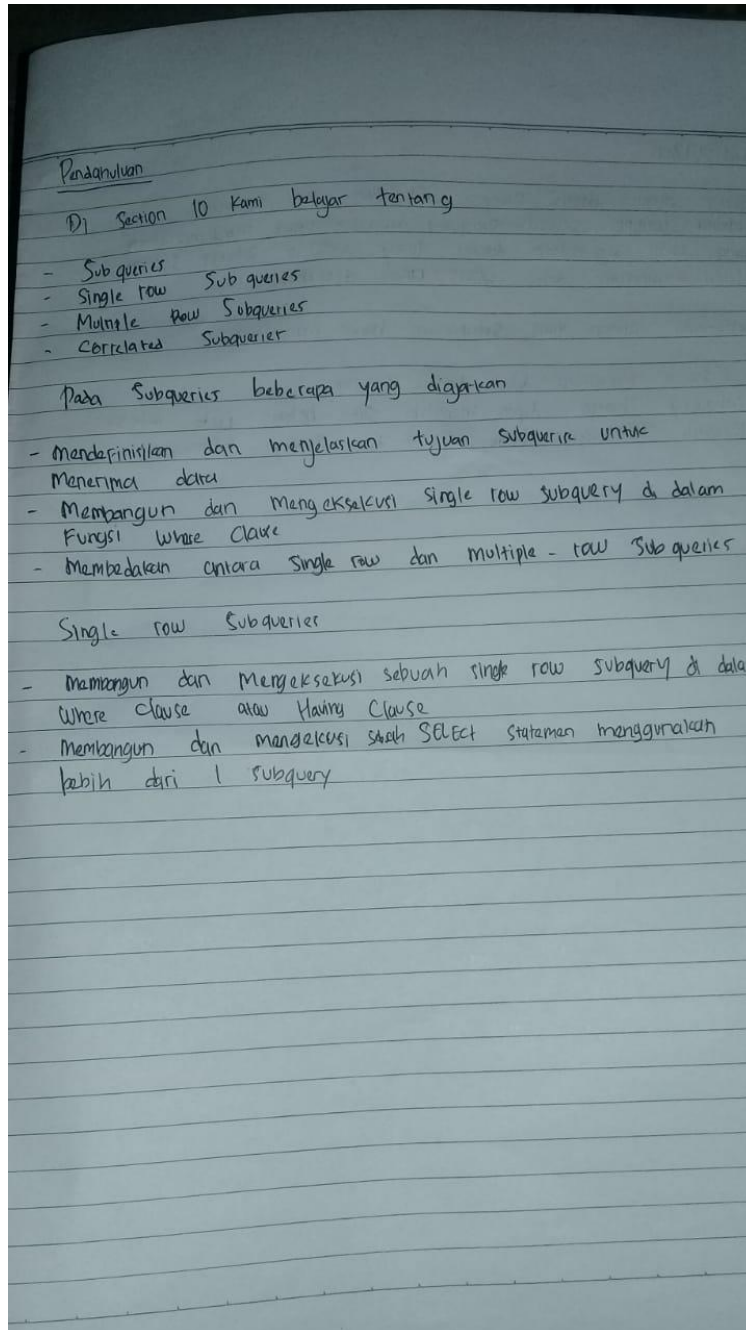 Pendahuluan
Di Section 10 Kami belajar tentang
- Sub queries
- Single row Sub queries
- Multiple Row Subqueries
- Correlated Subqueries
Pada Subqueries beberapa yang diajarkan
- Mendefinisikan dan menjelaskan tujuan subquerie untuk
Menerima data
- Membangun dan mengeksekusi single row subquery di dalam
Fungsi Where Clause
- Membedakan antara Single row dan multiple - row Sub queries
Single row Subqueries
- Membangun dan Mengeksekusi sebuah single row subquery di dala
Where Clause atau Having Clause
- Membangun dan mengekusi SELEct Statemen menggunakan
lebih dari 1 subquery